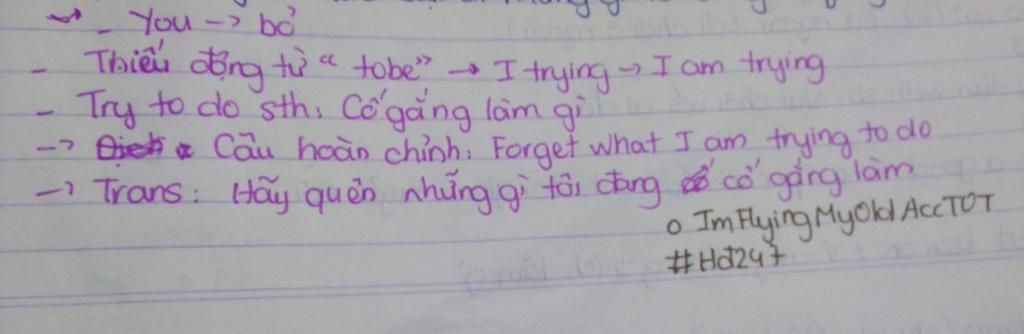 - You -> bỏ
- Thiếu động từ "tobe" -> I trying -> I am trying
- Try to do sth: Cố gắng làm gì
-> Câu hoàn chỉnh: Forget what I am trying to do
-> Trans: Hãy quên những gì tôi đang cố gắng làm
o ImFlyingMyOldAccTOT
#Hđ247